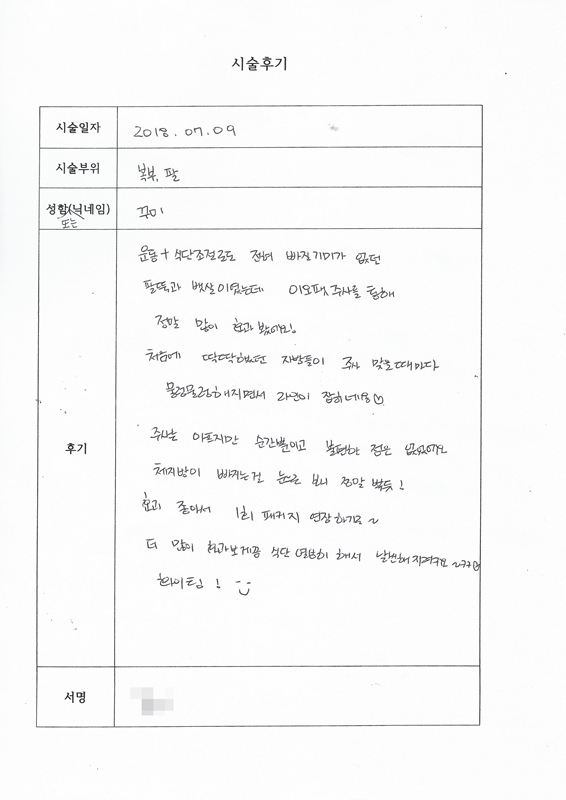 시술후기
시술일자 2018.07.09
시술부위 복부, 팔
성함(닉네임) 꾸미
또는
운동+식단조절로도 전혀 빠질기미가 없던
팔뚝과 뱃살이였는데 이오팻주사를 통해
정말 많이 효과 봤어요!
처음에 딱딱했던 지방들이 주사 맞을때마다
물렁물렁해지면서 라인이 잡히네용♡
후기
주사는 아프지만 순간뿐이고 불편한 점은 없었어요
체지방이 빠지는걸 눈으로 보니 정말 뿌듯!
효과 좋아서 1회 패키지 연장하기로~
더 많이 효과보게끔 식단 열심히 해서 날씬해지려구요~ㅋㅋ
화이팅!
서명